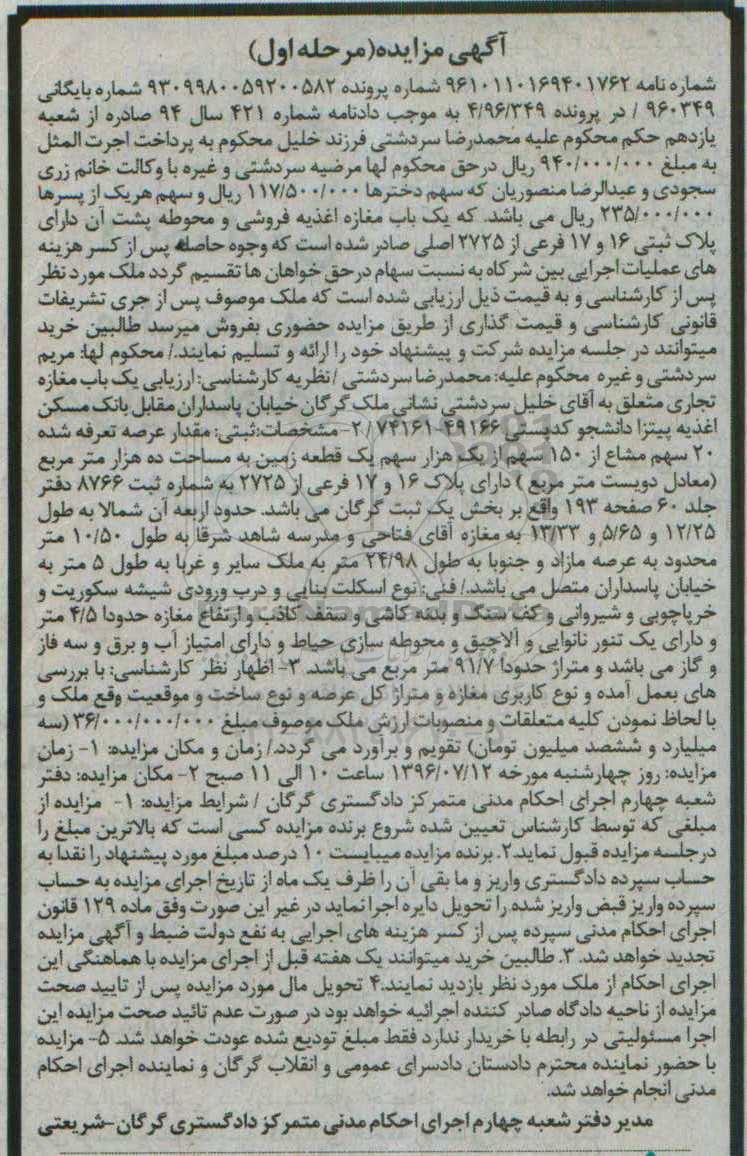 آگهی مزایده(مرحله اول)
شماره نامه ۹۶۱۰۱۱۰۱۶۹۴۰۱۷۶۲ شماره پرونده ۹۳۰۹۹۸۰۰۵۹۲۰۰۵۸۲ شماره بایگانی
۹۶۰۳۴۹ / در پرونده ۴/۹۶/۳۴۹ به موجب دادنامه شماره ۴۲۱ سال ۹۴ صادره از شعبه
یازدهم حکم محکوم علیه محمدرضا سردشتی فرزند خلیل محکوم به پرداخت اجرت المثل
به مبلغ ۹۴۰/۰۰۰/۰۰۰ ریال درحق محکوم لها مرضیه سردشتی و غیره با وکالت خانم زری
سجودی و عبدالرضا منصوریان که سهم دخترها ۱۱۷/۵۰۰/۰۰۰ ریال و سهم هریک از پسرها
۲۳۵/۰۰۰/۰۰۰ ریال می باشد. که یک باب مغازه اغذیه فروشی و محوطه پشت آن دارای
پلاک ثبتی ۱۶ و ۱۷ فرعی از ۲۷۲۵ اصلی صادر شده است که وجوه حاصله پس از کسر هزینه
های عملیات اجرایی بین شرکاه به نسبت سهام درحق خواهان ها تقسیم گردد ملک مورد نظر
پس از کارشناسی و به قیمت ذیل ارزیابی شده است که ملک موصوف پس از جری تشریفات
قانونی کارشناسی و قیمت گذاری از طریق مزایده حضوری بفروش میرسد طالبین خرید
میتوانند در جلسه مزایده شرکت و پیشنهاد خود را ارائه و تسلیم نمایند./ محکوم لها: مریم
سردشتی و غیره محکوم علیه: محمدرضا سردشتی / نظریه کارشناسی: ارزیابی یک باب مغازه
تجاری متعلق به آقای خلیل سردشتی نشانی ملک گرگان خیابان پاسداران مقابل بانک مسکن
اغذیه پیتزا دانشجو کدپستی ۴۹۱۶۶-۷۴۱۶۱ / ۲- مشخصات:ثبتی: مقدار عرصه تعرفه شده
۲۰ سهم مشاع از ۱۵۰ سهم از یک هزار سهم یک قطعه زمین به مساحت ده هزار متر مربع
(معادل دویست متر مربع ) دارای پلاک ۱۶ و ۱۷ فرعی از ۲۷۲۵ به شماره ثبت ۸۷۶۶ دفتر
جلد ۶۰ صفحه ۱۹۳ واقع بر بخش یک ثبت گرگان می باشد. حدود اربعه آن شمالا به طول
۱۲/۲۵ و ۵/۶۵ و ۱۳/۳۳ به مغازه آقای فتاحی و مدرسه شاهد شرقا به طول ۱۰/۵۰ متر
محدود به عرصه مازاد و جنوبا به طول ۲۴/۹۸ متر به ملک سایر و غربا به طول ۵ متر به
خیابان پاسداران متصل می باشد./ فنی: نوع اسکلت بنایی و درب ورودی شیشه سکوریت و
خرپاچوبی و شیروانی و کف سنگ و بدنه کاشی و سقف کاذب و ارتفاع مغازه حدودا ۴/۵ متر
و دارای یک تنور نانوایی و آلاچیق و محوطه سازی حیاط و دارای امتیاز آب و برق و سه فاز
و گاز می باشد و متراژ حدودا ۹۱/۷ متر مربع می باشد. ۳- اظهار نظر کارشناسی: با بررسی
های بعمل آمده و نوع کاربری مغازه و متراژ کل عرصه و نوع ساخت و موقعیت وقع ملک و
با لحاظ نمودن کلیه متعلقات و منصوبات ارزش ملک موصوف مبلغ ۳۶/۰۰۰/۰۰۰/۰۰۰ (سه
میلیارد و ششصد میلیون تومان) تقویم و برآورد می گردد./ زمان و مکان مزایده: ۱- زمان
مزایده: روز چهارشنبه مورخه ۱۳۹۶/۰۷/۱۲ ساعت ۱۰ الی ۱۱ صبح ۲- مکان مزایده: دفتر
شعبه چهارم اجرای احکام مدنی متمرکز دادگستری گرگان / شرایط مزایده: ۱- مزایده از
مبلغی که توسط کارشناس تعیین شده شروع برنده مزایده کسی است که بالاترین مبلغ را
درجلسه مزایده قبول نماید.۲. برنده مزایده میبایست ۱۰ درصد مبلغ مورد پیشنهاد را نقدا به
حساب سپرده دادگستری واریز و ما بقی آن را ظرف یک ماه از تاریخ اجرای مزایده به حساب
سپرده واریز قبض واریز شده را تحویل دایره اجرا نماید در غیر این صورت وفق ماده ۱۲۹ قانون
اجرای احکام مدنی سپرده پس از کسر هزینه های اجرایی به نفع دولت ضبط و آگهی مزایده
تجدید خواهد شد. ۳. طالبین خرید میتوانند یک هفته قبل از اجرای مزایده با هماهنگی این
اجرای احکام از ملک مورد نظر بازدید نمایند.۴ تحویل مال مورد مزایده پس از تایید صحت
مزایده از ناحیه دادگاه صادر کننده اجرائیه خواهد بود در صورت عدم تائید صحت مزایده این
اجرا مسئولیتی در رابطه با خریدار ندارد فقط مبلغ تودیع شده عودت خواهد شد. ۵- مزایده
با حضور نماینده محترم دادستان دادسرای عمومی و انقلاب گرگان و نماینده اجرای احکام
مدنی انجام خواهد شد.
مدیر دفتر شعبه چهارم اجرای احکام مدنی متمرکز دادگستری گرگان-شریعتی